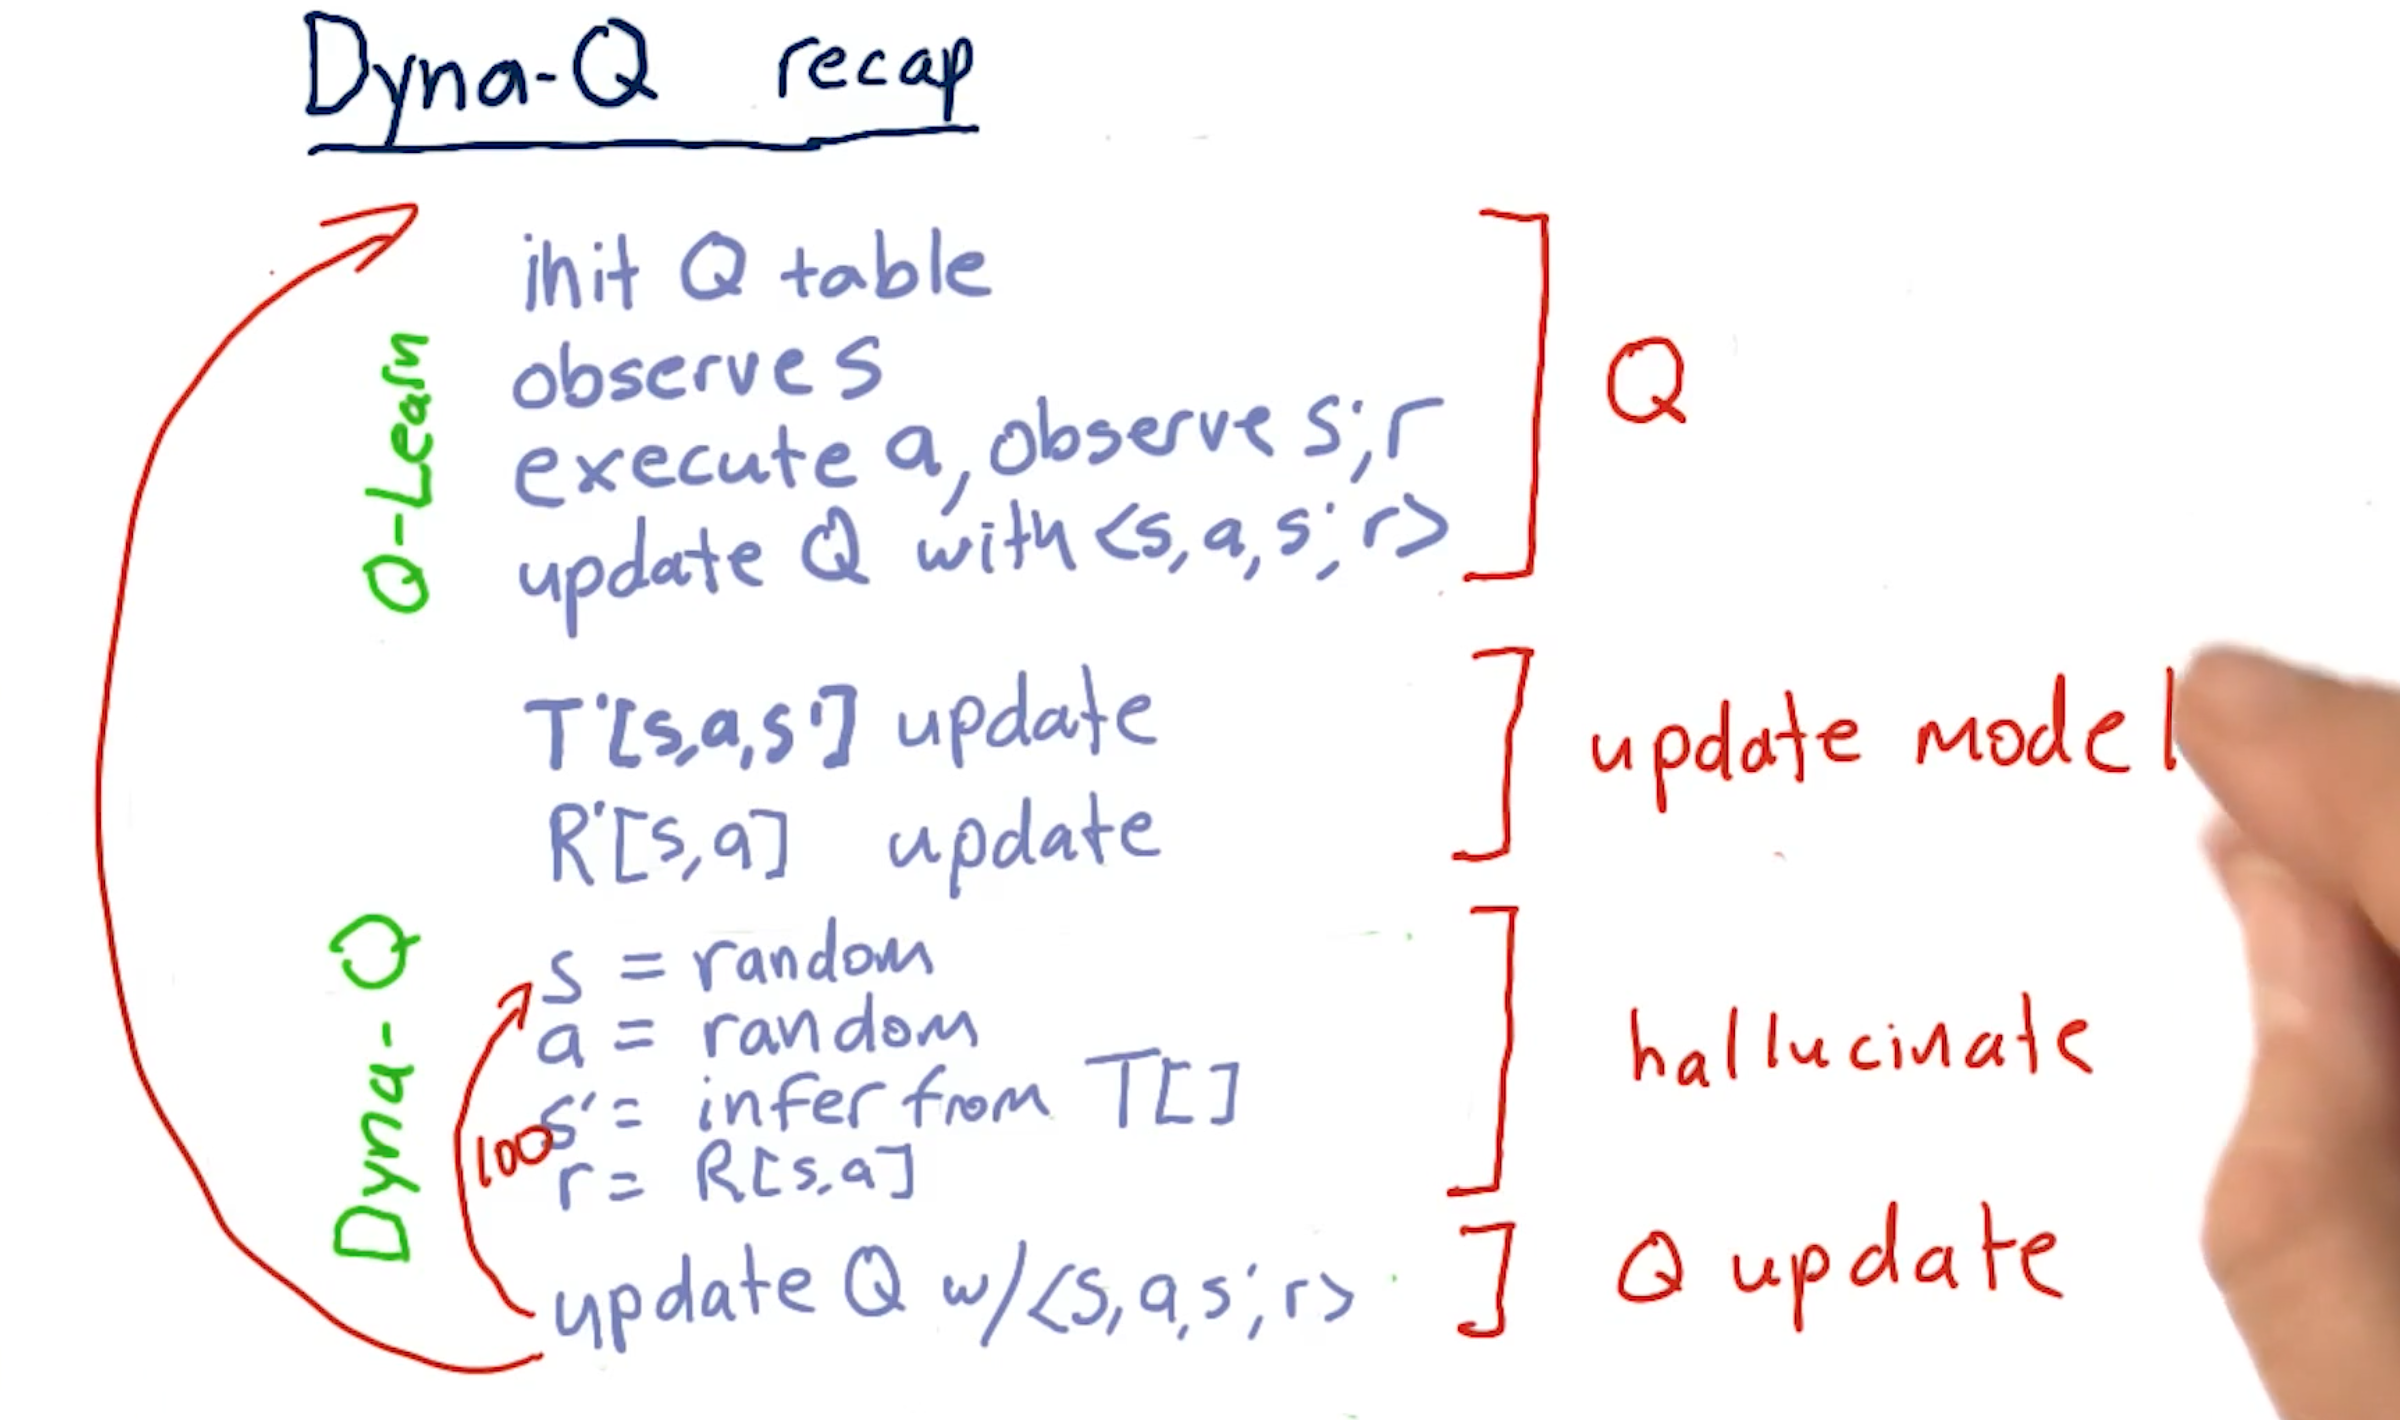 Dyna-Q recap
Q-Learn
init Q table
observe s
execute a, observe s', r
update Q with <s, a, s', r>
Q
T'[s,a,s'] update
R'[s,a] update
update model
Dyna-Q
s = random
a = random
s' = infer from T[]
r = R[s,a]
100
hallucinate
update Q w/<s, a, s', r>
Q update